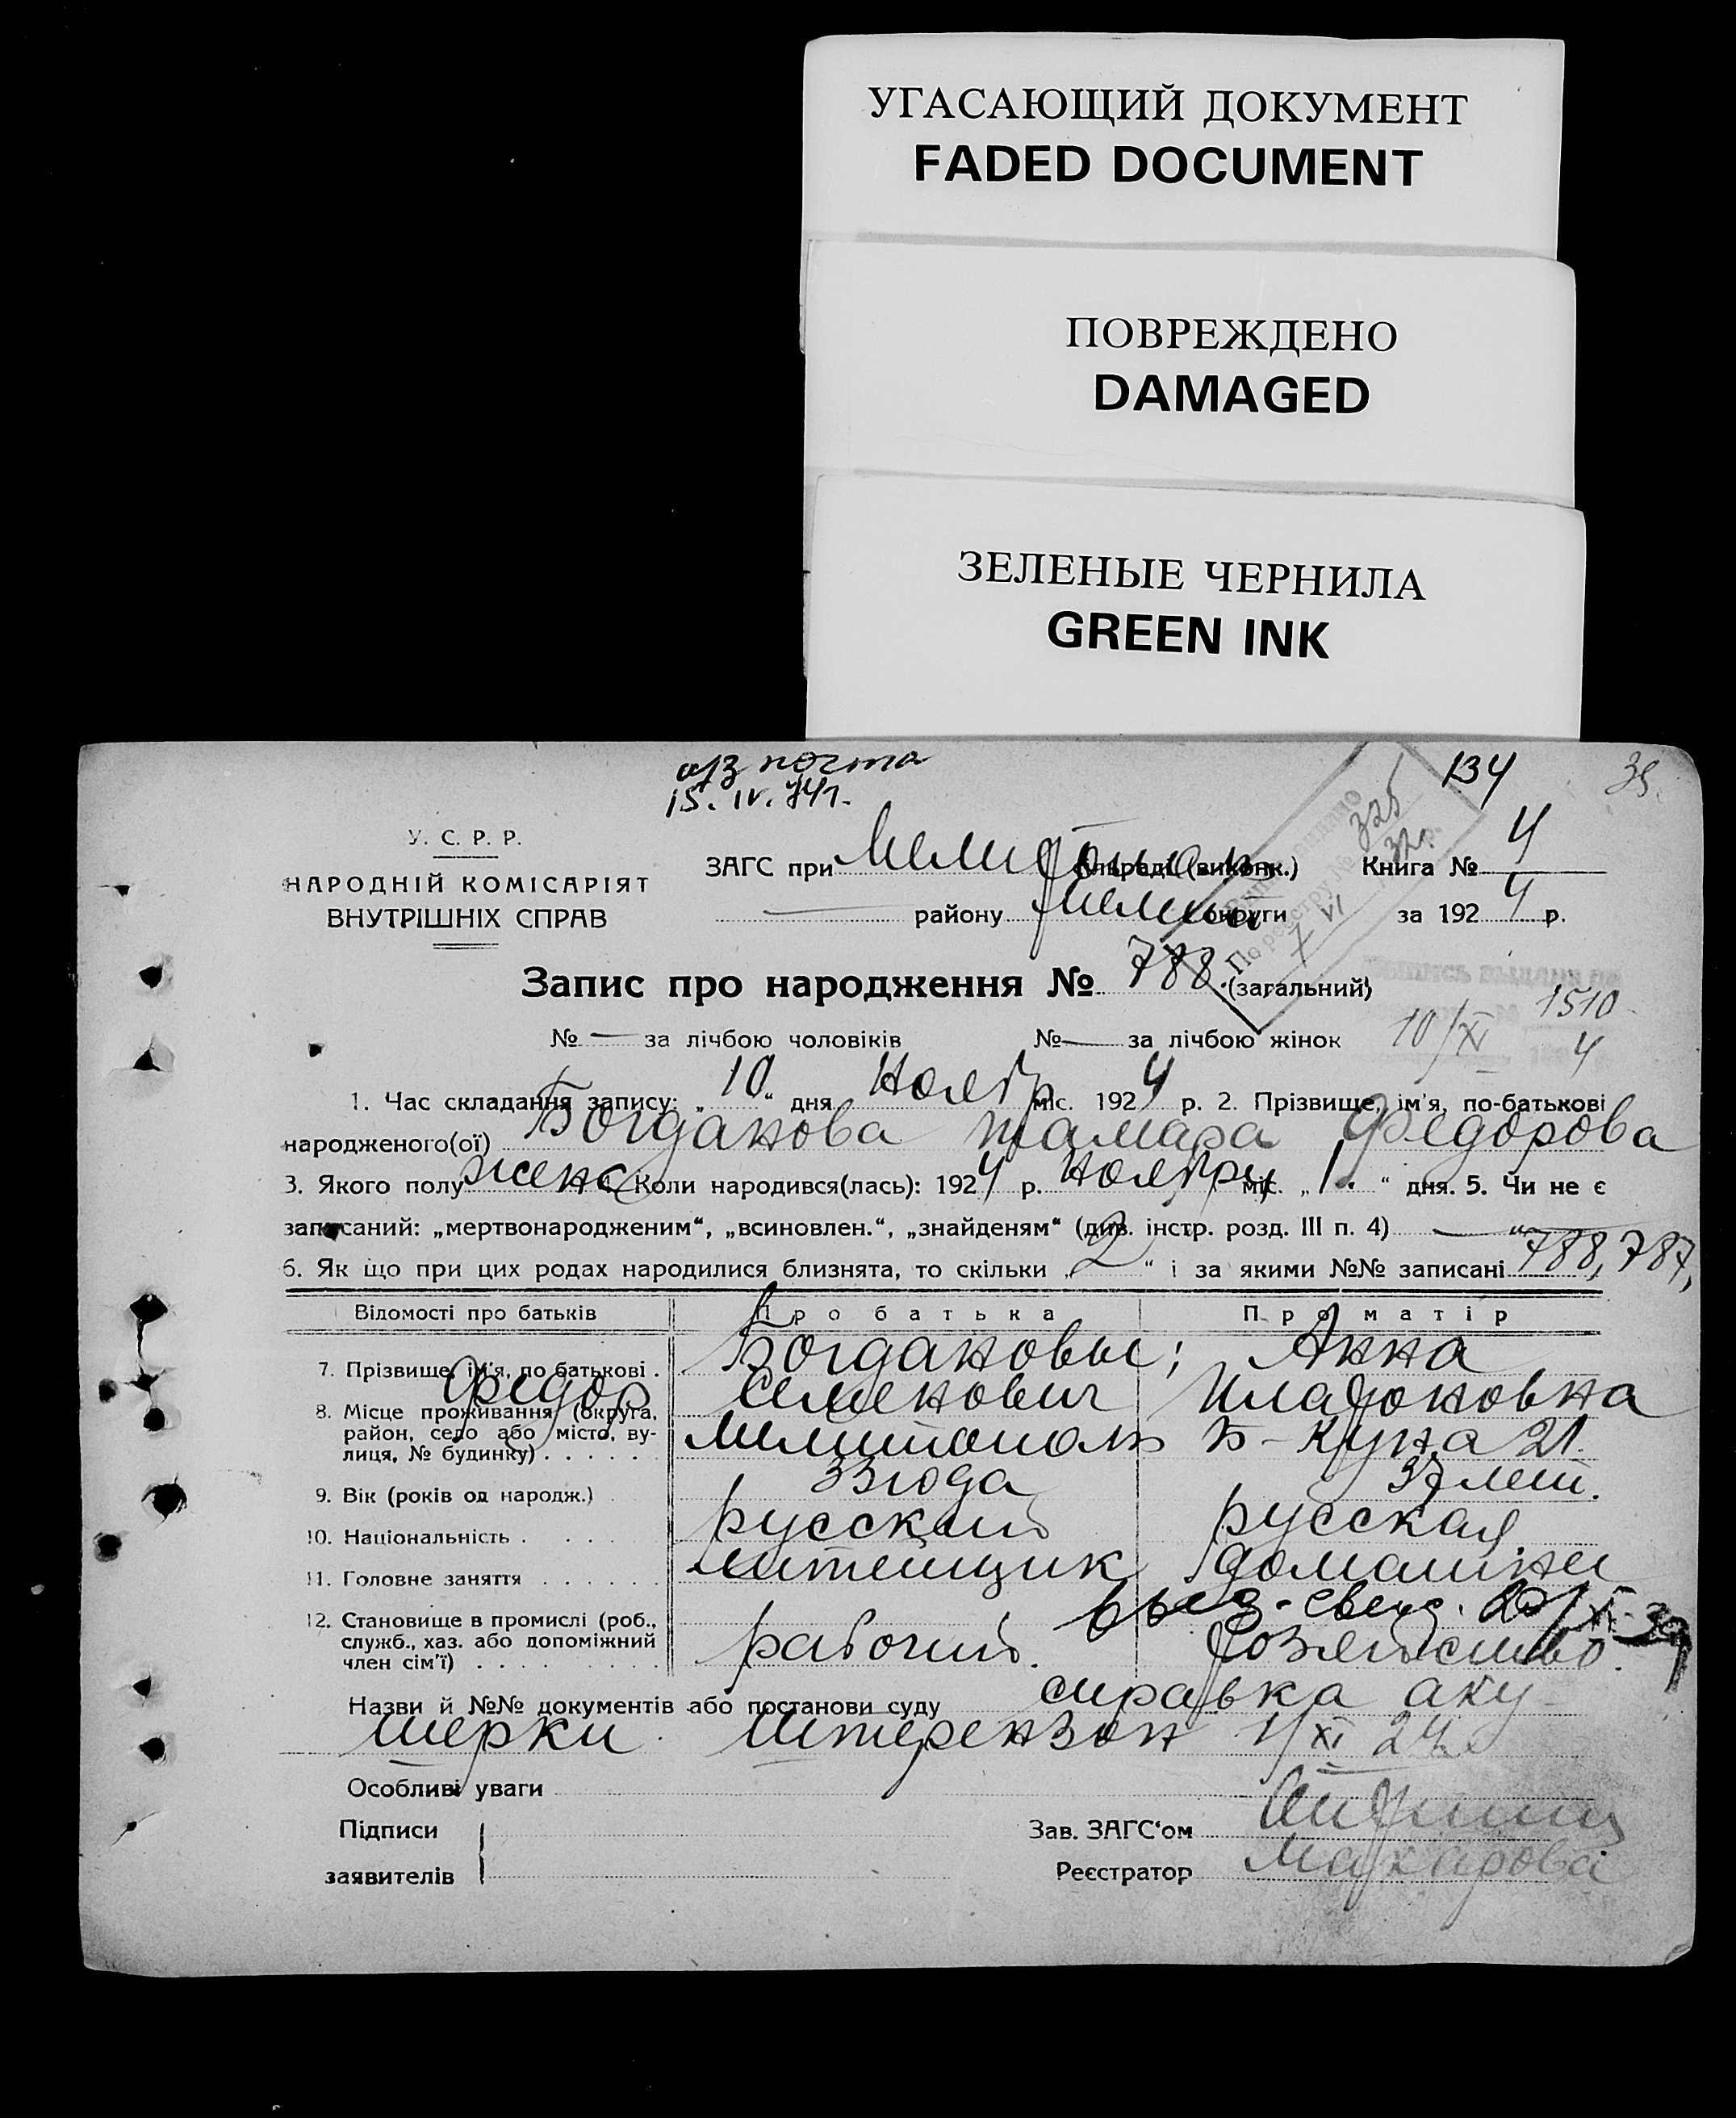 УГАСАЮЩИЙ ДОКУМЕНТ
FADED DOCUMENT
ПОВРЕЖДЕНО
DAMAGED
ЗЕЛЕНЫЕ ЧЕРНИЛА
GREEN INK
почта
15. IV. 74г.
134
У. С. Р. Р.
НАРОДНІЙ КОМІСАРІЯТ
ВНУТРІШНІХ СПРАВ
325
ЗАГС при (виконк.) Книга № 4
району округи за 1924 р.
Запис про народження № 788. (загальний)
1510
№ — за лічбою чоловіків № — за лічбою жінок 10/XI 4
1. Час складання запису: „10“ дня Ноябр міс. 1924 р. 2. Прізвище, ім'я, по-батькові
народженого(ої) Богданова Тамара Федорова
3. Якого полу женс 4. Коли народився(лась): 1924 р. Ноября міс. „1.“ дня. 5. Чи не є
записаний: „мертвонародженим“, „всиновлен.“, „знайденям“ (див. інстр. розд. III п. 4) —
6. Як що при цих родах народилися близнята, то скільки „2“ і за якими №№ записані 788, 787,
Відомості про батьків Про батька Про матір
7. Прізвище, ім'я, по батькові . Богдановы; Анна
Федор Семенович Платоновна
8. Місце проживання (округа,
район, село або місто, ву-
лиця, № будинку) . . . . . . Мелитополь Б-Куна 21.
9. Вік (років од народж.) 33 года 37 лет.
10. Національність . . . . русский русская
11. Головне заняття . . . . . . литейщик домашнее
выд. свид. XI-39
12. Становище в промислі (роб.,
служб., хаз. або допоміжний
член сім'ї) . . . . . . . . . рабочий. хозяйство.
Назви й №№ документів або постанови суду справка аку-
шерки Штерензон 1/XI 24
Особливі уваги
Підписи
заявителів
Зав. ЗАГС'ом
Реєстратор